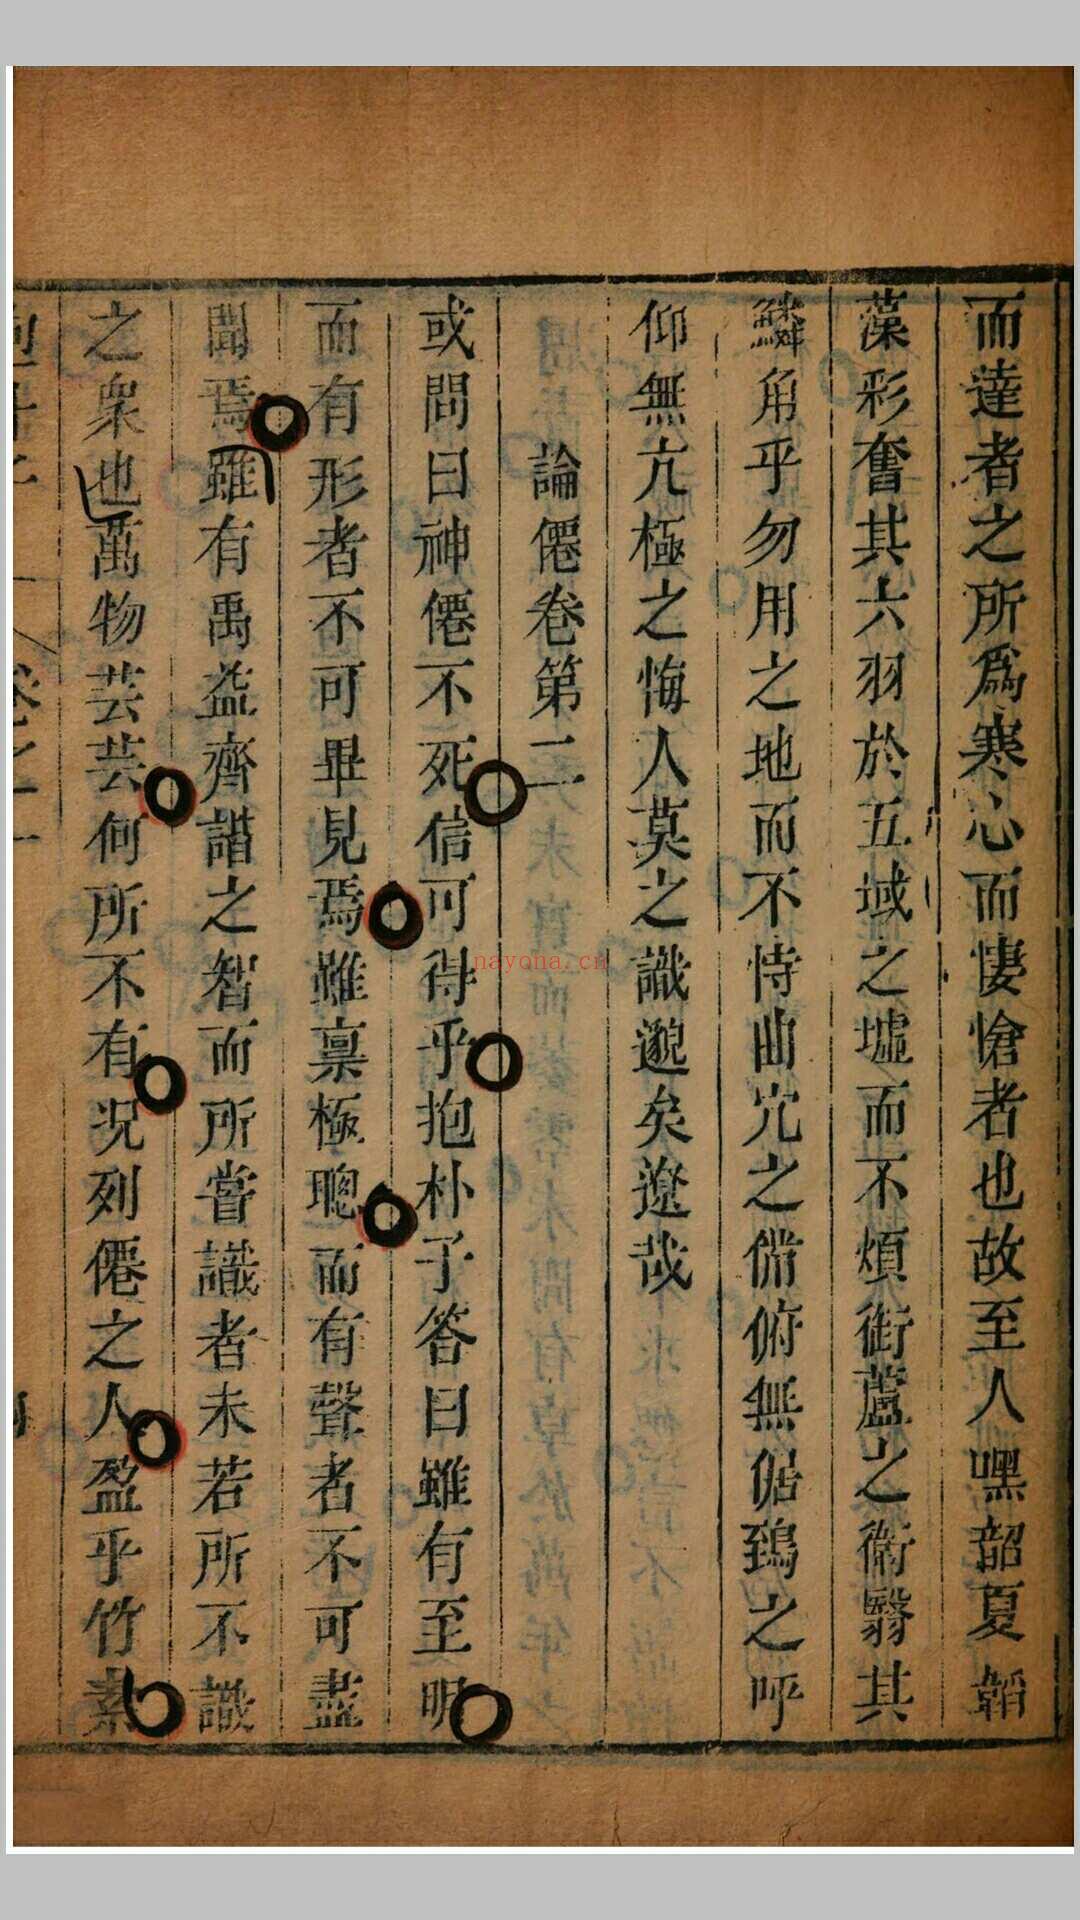 而達者之所爲寒心而悽愴者也故至人嘿韶夏韜
藻彩奮其六羽於五域之墟而不煩銜蘆之衞翳其
鱗角乎勿用之地而不恃曲穴之備俯無倨鵄之呼
仰無亢極之悔人莫之識邈矣遼哉
論僊卷第二
或問曰神僊不死信可得乎抱朴子答曰雖有至明
而有形者不可畢見焉雖禀極聰而有聲者不可盡
聞焉雖有禹益齊諧之智而所嘗識者未若所不識
之衆也萬物芸芸何所不有况列僊之人盈乎竹素
nayona.cn